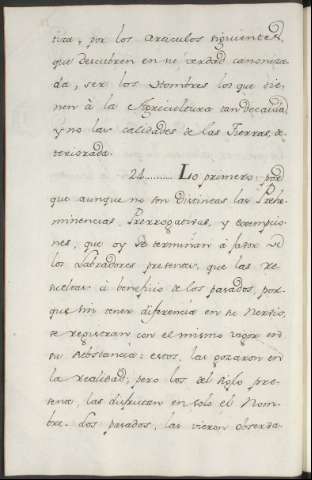 tira, por los Articulos siguientes,
que descubren en su verdad canoniza-
da, ser los Hombres los que tie-
nen à la Agricultura tan decaida,
y no las calidades de las Tierras, de-
teriorada.
24......... Lo primero: por
que aunque no son distintas las Prehe-
minencias, Prerrogativas, y exempcio-
nes, que oy se terminan á favor de
los Labradores presentes, que las re-
sueltas à beneficio de los pasados, por-
que sin tener diferencia en su Nervio,
se registran con el mismo vigor en
su substancia: estos, las gozaron en
la realidad; pero los del siglo pre-
sente, las disfrutan en solo el Nom-
bre. Los pasados, las vieron observa-